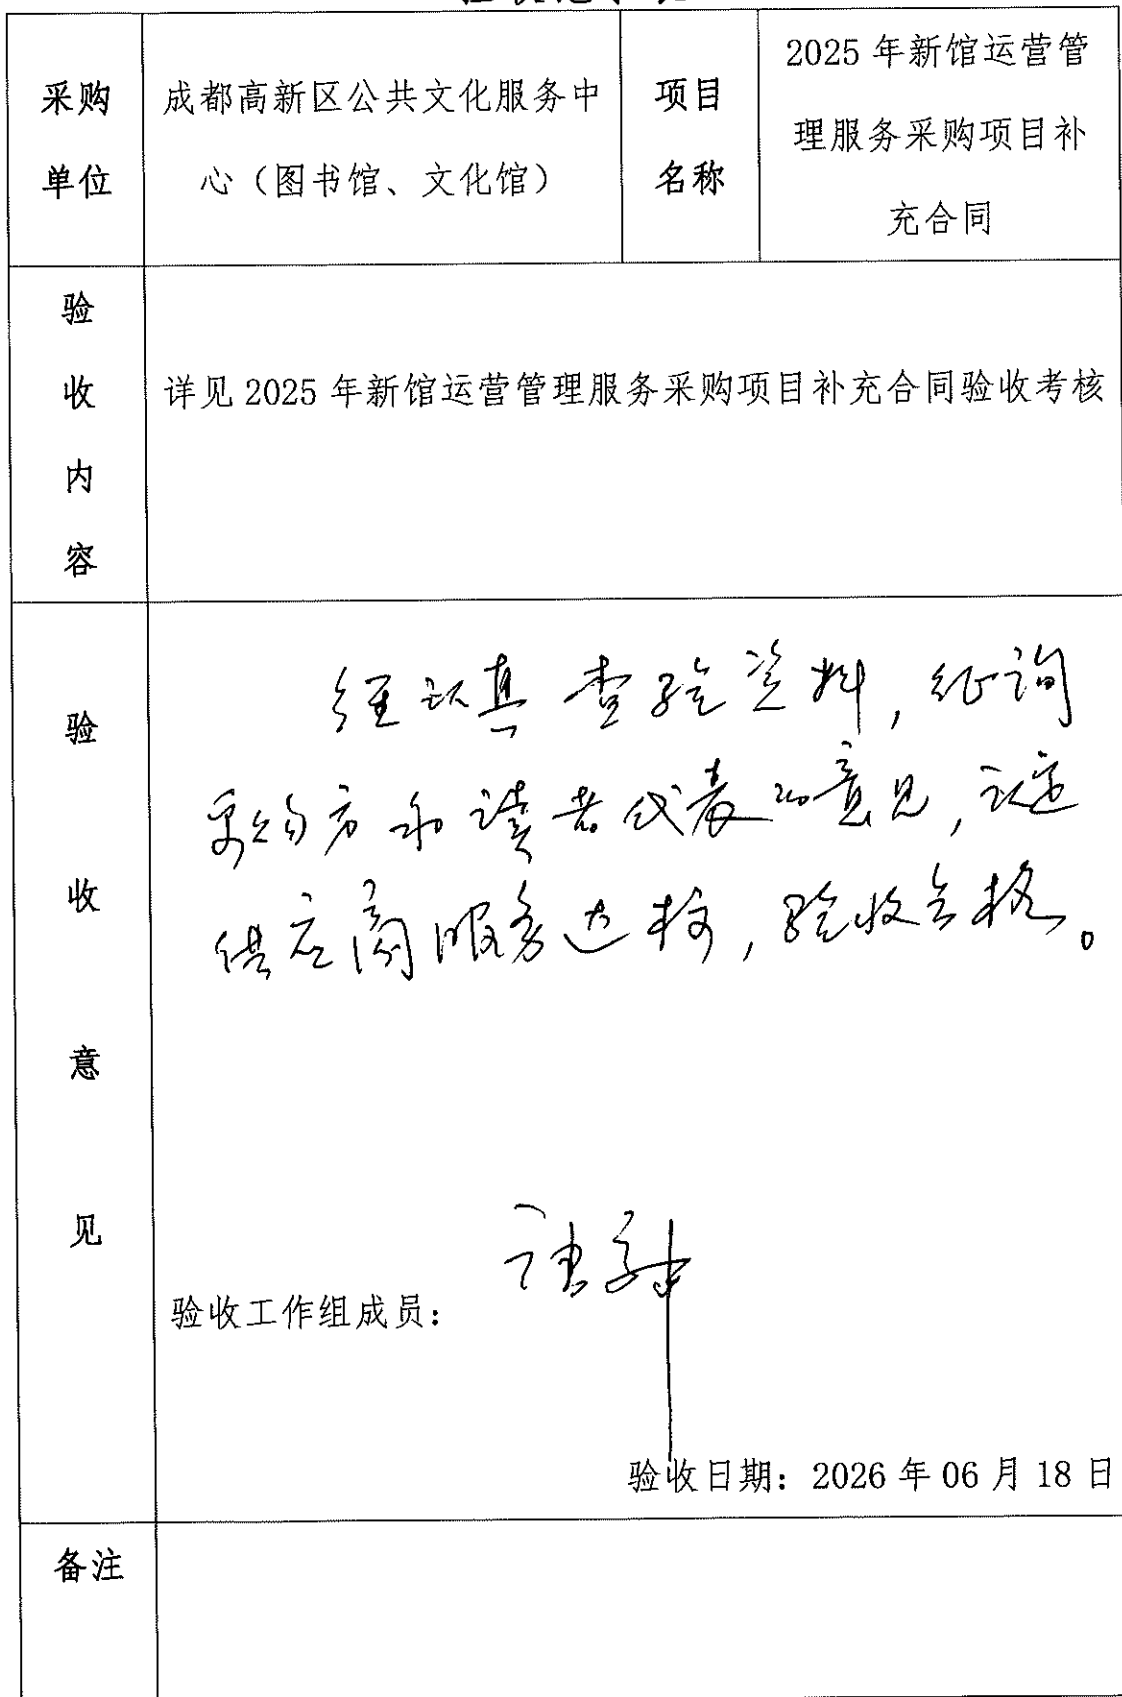 采购
单位
成都高新区公共文化服务中
心（图书馆、文化馆）
项目
名称
2025 年新馆运营管
理服务采购项目补
充合同
验
收
内
容
详见 2025 年新馆运营管理服务采购项目补充合同验收考核
验
收
意
见
经认真查验资料，征询
采购方和读者代表的意见，认定
供应商服务达标，验收合格。
验收工作组成员：
验收日期：2026 年 06 月 18 日
备注